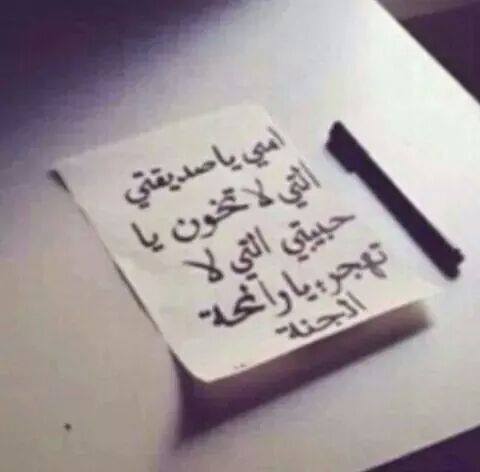 امي يا صديقتي
التي لا تخون يا
حبيبتي التي لا
تهجر، يا رائحة
الجنة